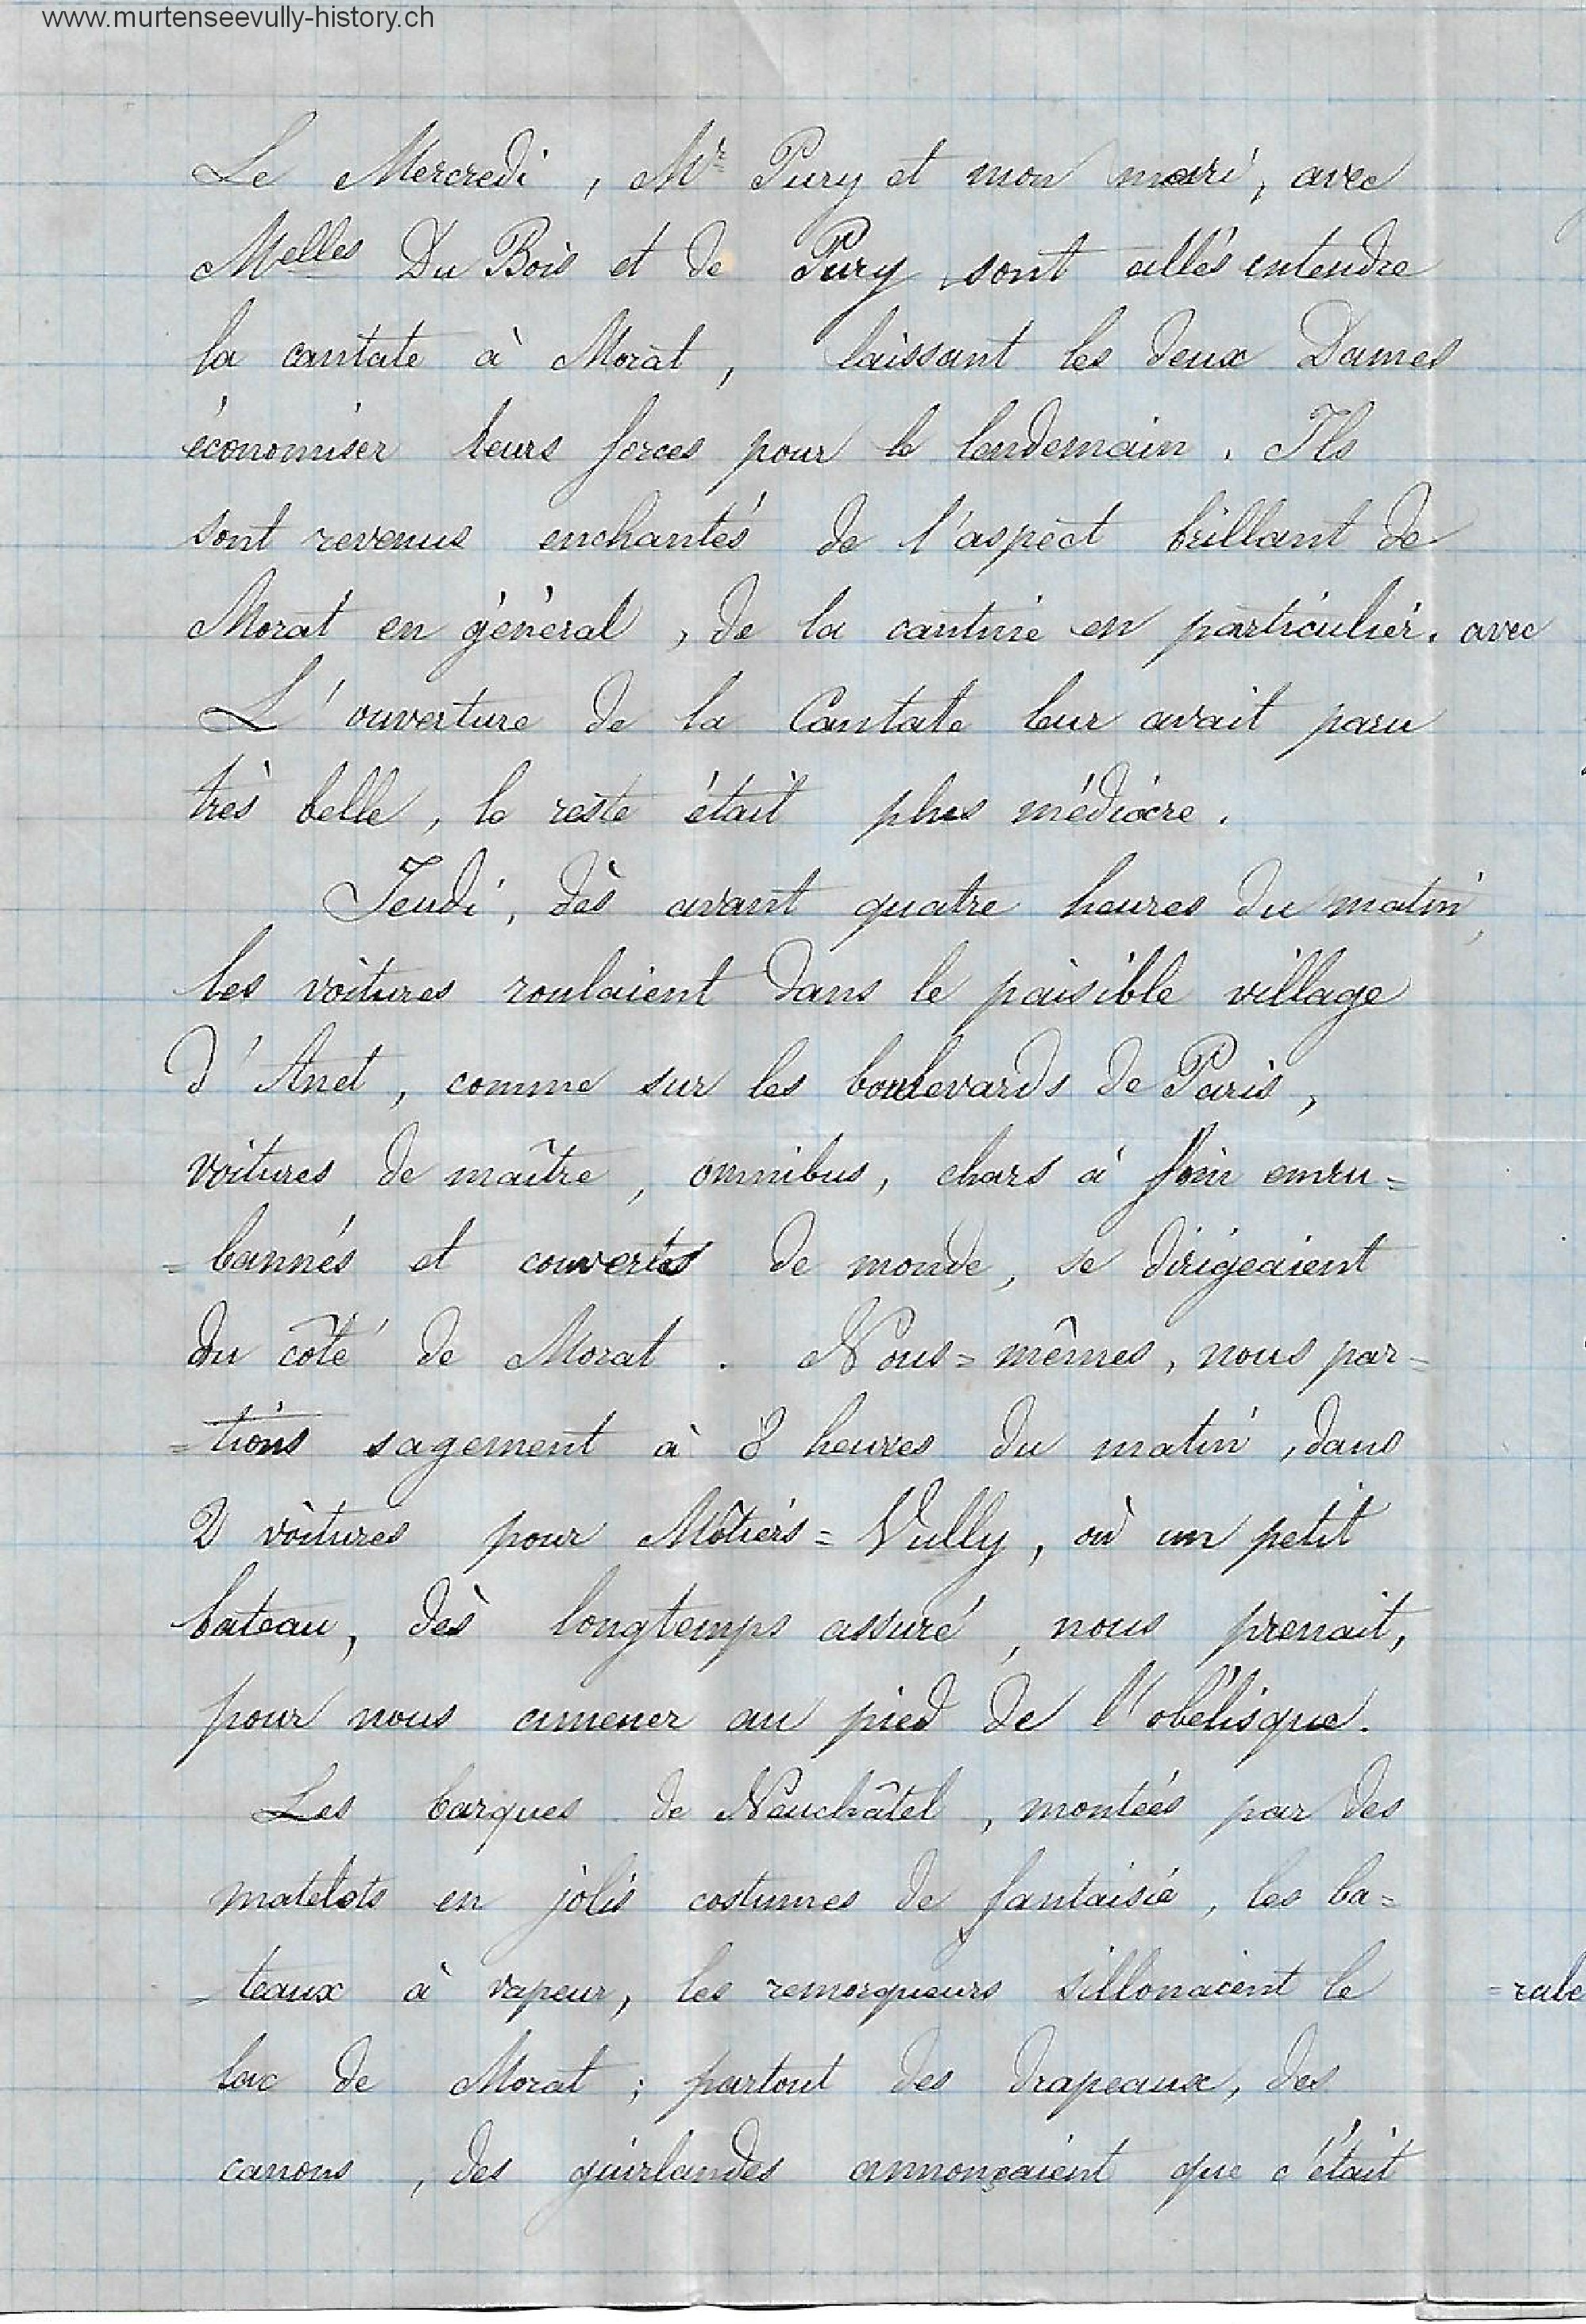 www.murtenseevully-history.ch
Le Mercredi, Mr Pury et mon mari, avec
Melles Du Bois et de Pury sont allés entendre
la cantate à Morat, laissant les deux Dames
économiser leurs forces pour le lendemain. Ils
sont revenus enchantés de l'aspect brillant de
Morat en général, de la cantine en particulier.
avec
L'ouverture de la Cantate leur avait paru
très belle, le reste était plus médiocre.
Jeudi, dès avant quatre heures du matin,
les voitures roulaient dans le paisible village
d'Anet, comme sur les boulevards de Paris,
voitures de maître, omnibus, chars à foin enru=
=bannés et couverts de monde, se dirigeaient
du côté de Morat. Nous=mêmes, nous par=
=tions sagement à 8 heures du matin, dans
2 voitures pour Môtiers=Vully, où un petit
bateau, dès longtemps assuré, nous prenait,
pour nous amener au pied de l'obélisque.
Les barques de Neuchâtel, montées par des
matelots en jolis costumes de fantaisie, les ba=
=teaux à vapeur, les remorqueurs sillonaient le
=rale
lac de Morat; partout des drapeaux, des
canons, des guirlandes annonçaient que c'était